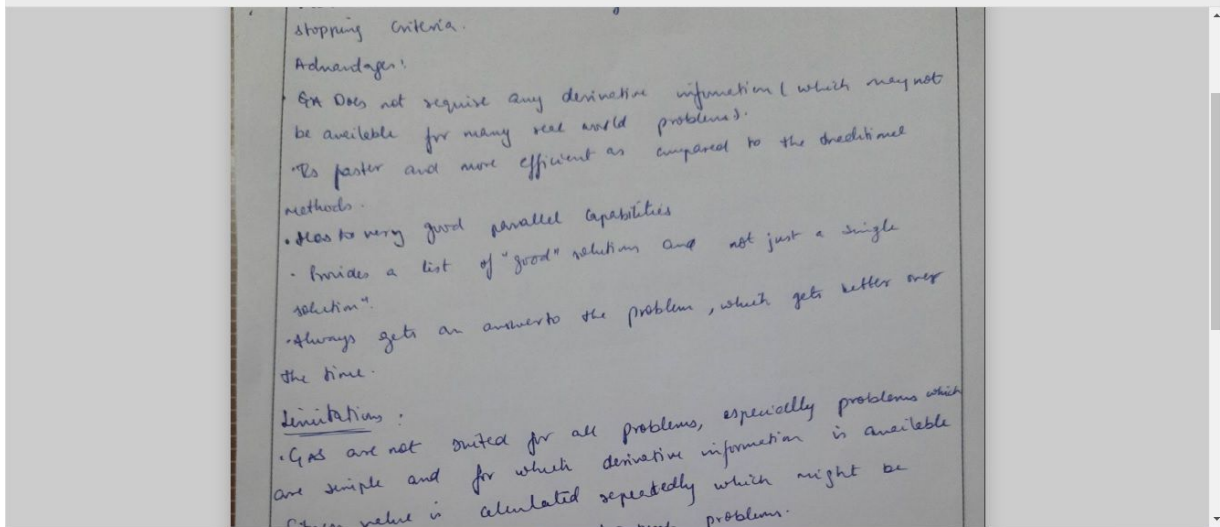 stopping criteria.
Advantages:
· GA Does not require any derivative information ( which may not
be available for many real world problems).
· Is faster and more efficient as compared to the traditional
methods.
· Has to very good parallel capabilities
· Provides a list of "good" solutions and not just a single
solution".
· Always gets an answer to the problem, which gets better over
the time.
Limitations :
· GAs are not suited for all problems, especially problems which
are simple and for which derivative information is available
value is calculated repeatedly which might be
problems.